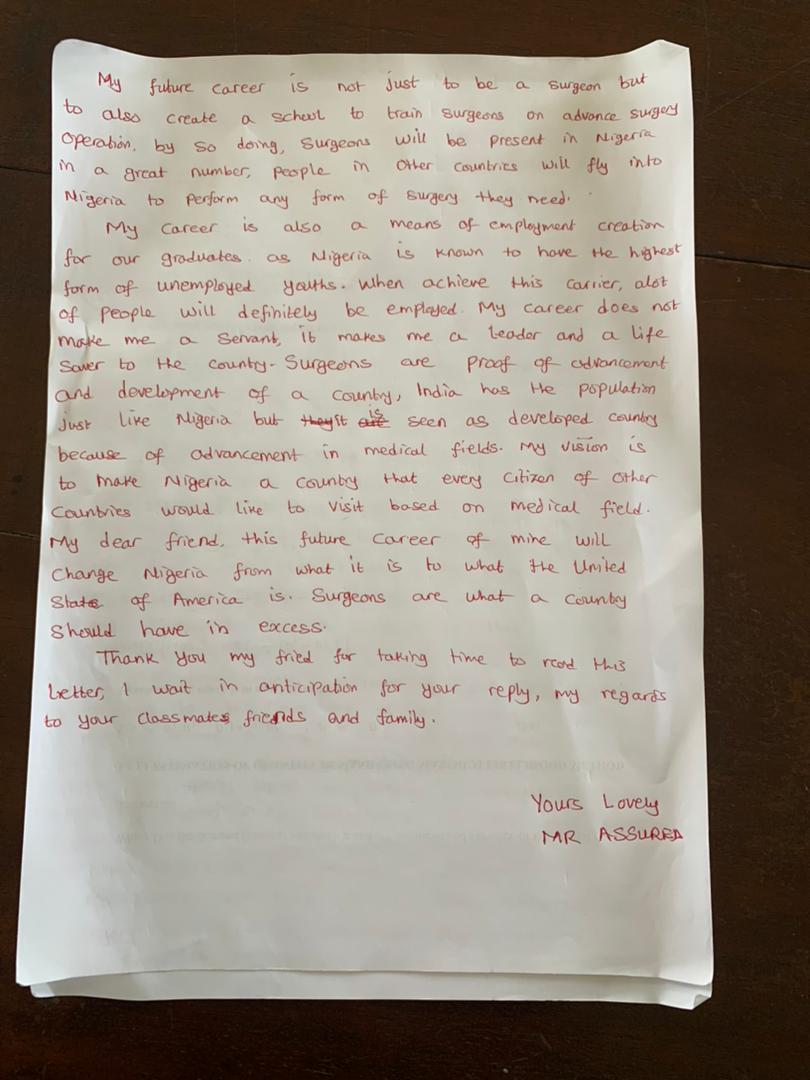 My future career is not just to be a surgeon but
to also create a school to train surgeons on advance surgery
operation. by so doing, surgeons will be present in Nigeria
in a great number, people in other countries will fly into
Nigeria to perform any form of surgery they need.
My career is also a means of employment creation
for our graduates. as Nigeria is known to have the highest
form of unemployed youths. When achieve this carrier, alot
of people will definitely be employed. My career does not
make me a servant, it makes me a leader and a life
saver to the country. Surgeons are proof of advancement
and development of a country, India has the population
just like Nigeria but it is seen as developed country
because of advancement in medical fields. My vision is
to make Nigeria a country that every citizen of other
countries would like to visit based on medical field.
My dear friend, this future career of mine will
change Nigeria from what it is to what the United
States of America is. Surgeons are what a country
should have in excess.
Thank you my fried for taking time to read this
letter, I wait in anticipation for your reply, my regards
to your classmates friends and family.
Yours Lovely
MR ASSURED